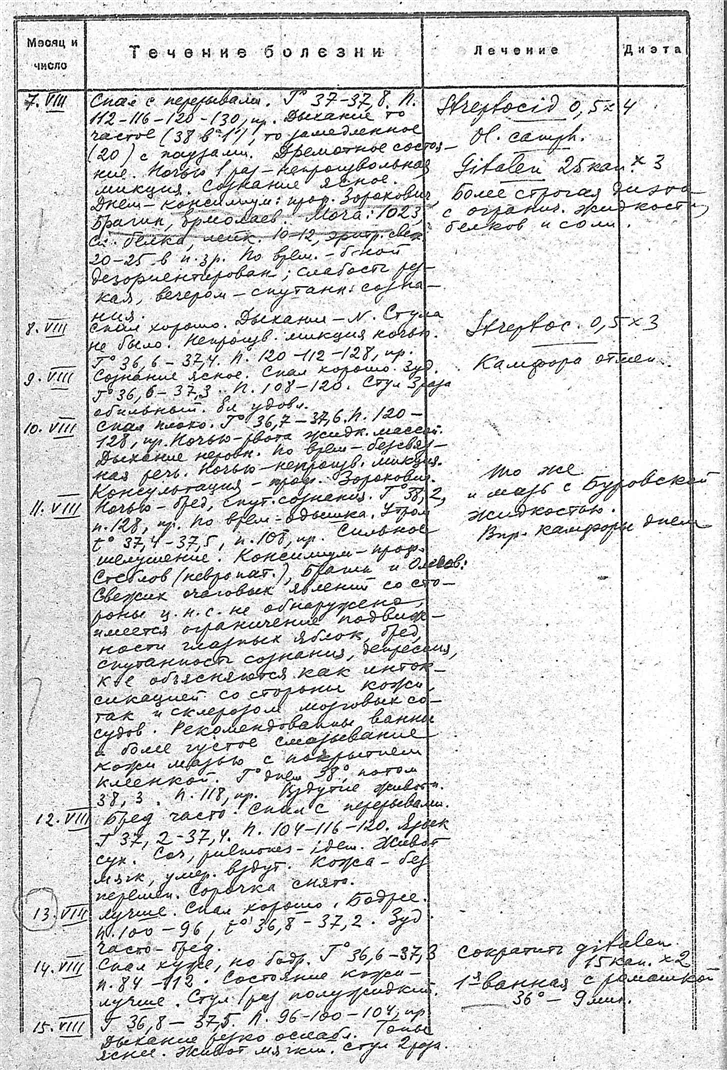 Месяц и число
Течение болезни
Лечение
Диэта
7. VIII
Спал с перерывами. T° 37-37,8. П.
112-116-120-130, пр. Дыхание то
частое (38 в 1'), то замедленное
(20) с паузами. Дремотное состоя-
ние. Ночью 1 раз - непроизвольная
микция. Сознание ясное.
Днем - консилиум: проф. Зорохович,
Брагин, Ермолаев. Моча: 1023,
Сл. белка, лейк. 10-12, эритр. свеж.
20-25 в п. зр. По врем. - б-ной
дезориентирован; слабость рез-
кая, вечером - спутанн. созна-
ния.
Streptocid 0,5 x 4
Ol. camph.
Gitalen 25 кап. x 3
Более строгая диэта
с огранич. жидкости,
белков и соли.
8. VIII
Спал хорошо. Дыхание - N. Стула
не было. Непроизв. микция ночью.
T° 36,6-37,4. П. 120-112-128, пр.
Streptoc. 0,5 x 3
9. VIII
Сознание ясное. Спал хорошо. Зуд.
T° 36,6-37,3. П. 108-120. Стул 3 раза
обильный.
Камфора отмен.
10. VIII
Спал плохо. T° 36,7-37,6. П. 120-
128, пр. Ночью - рвота жидк. массой.
Дыхание неровн. По врем. - бессвяз-
ная речь. Ночью - непроизв. микция.
Консультация - проф. Зорохович.
То же
и мазь с Буровской
жидкостью.
11. VIII
Ночью - бред, спут. сознания. T° 38,2,
п. 128, пр. По врем. - одышка. Утром
t° 37,4-37,5, п. 108, пр. Сильное
шелушение. Консилиум - проф.
(невропат.), Брагин и
Свежих очаговых явлений со сто-
роны ц.н.с. не обнаружено,
имеется ограничение подвиж-
ности глазных яблок, бред,
спутанность сознания, депрессия,
к-ые объясняются как инток-
сикацией со стороны кожи,
так и склерозом мозговых со-
судов. Рекомендованы ванны
и более густое смазывание
кожи мазью с покрытием
клеенкой. T° днем 38°, потом
38,3. П. 118, пр. Вздутие живота.
Впр. камфоры днем
12. VIII
Бред часто. Спал с перерывами.
T 37,2-37,4. П. 104-116-120. Язык
сух. Cor, pulmones - idem. Живот
мягк., умер. вздут. Кожа - без
перемен. Сорочка снята.
13. VIII
Лучше. Спал хорошо. Бодрее.
П. 100-96, t° 36,8-37,2. Зуд.
Часто - бред.
14. VIII
Спал хуже, но бодр. T° 36,6-37,3
п. 84-112. Состояние кожи -
лучше. Стул 1 раз полужидкий.
Сократить gitalen
15 кап. x 2
1-я ванная с ромашкой
36° - 9 мин.
15. VIII
T 36,8-37,5. П. 96-100-104, пр.
Дыхание резко ослабл. Тоны
яснее. Живот мягкий. Стул 2 раза.